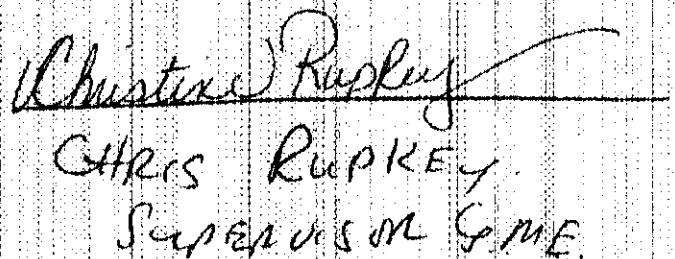 Christine Rupkey
CHRIS RUPKEY.
SUPERVISOR GME.